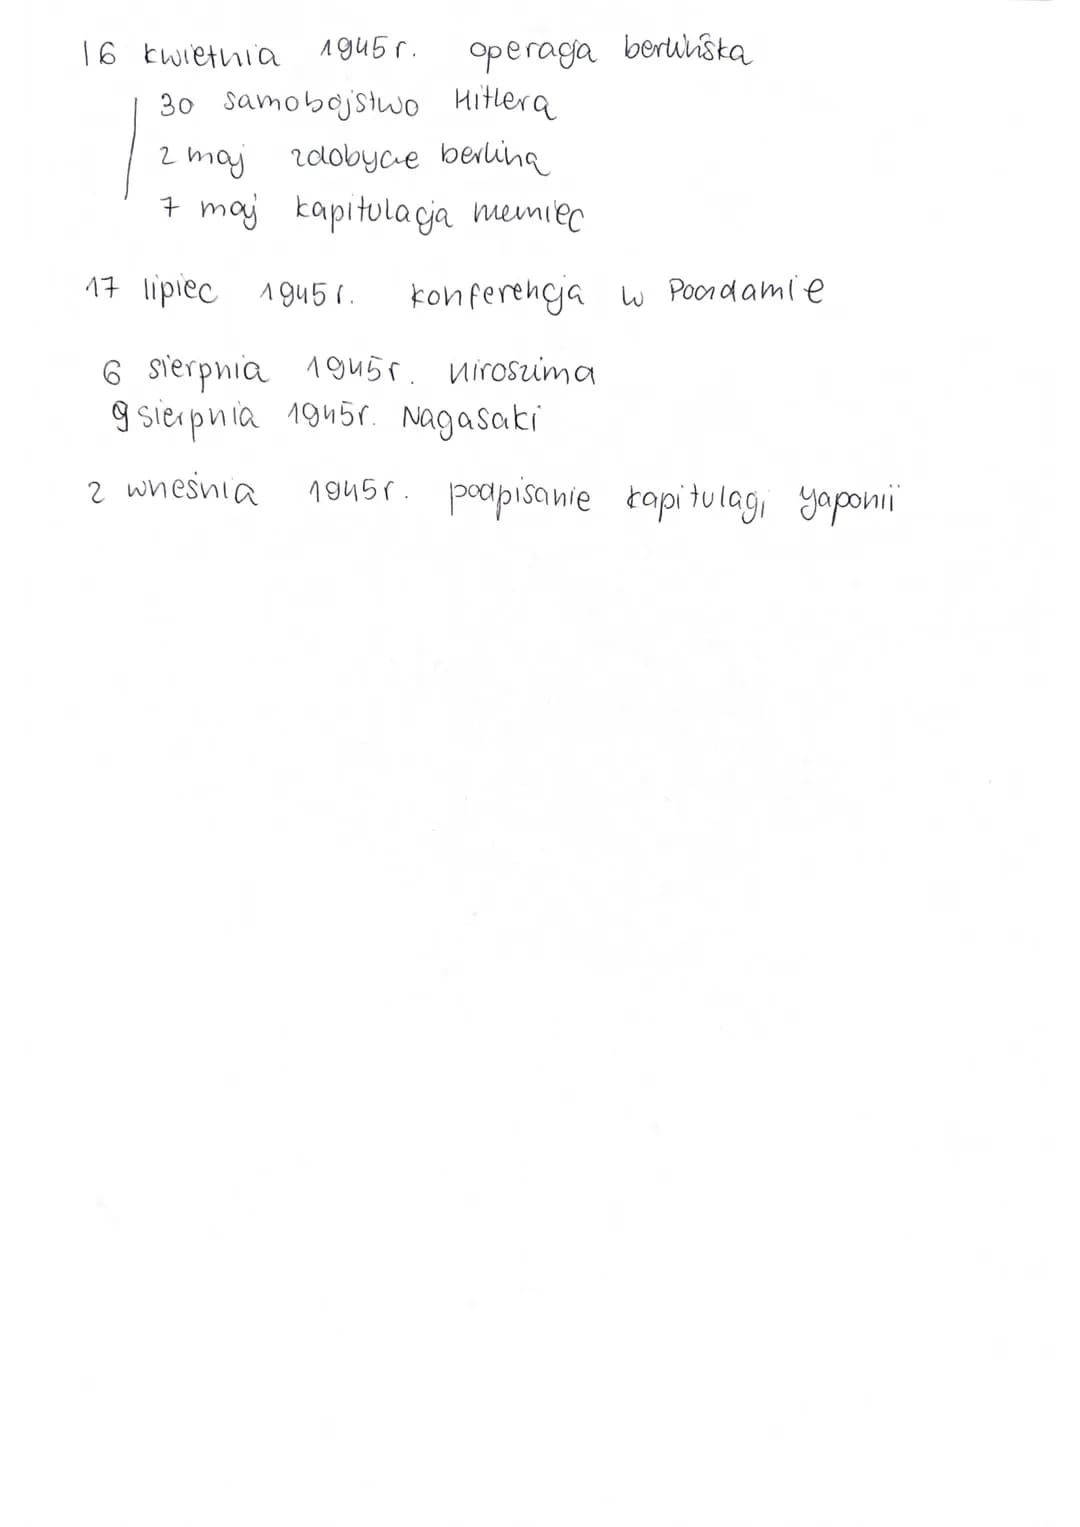 16 kwietnia 1945r. operacja berlińska
30 samobójstwo Hitlera
2 maj zdobycie berlina
7 maj kapitulacja niemiec
17 lipiec 1945r. konferencja w Poczdamie
6 sierpnia 1945r. Hiroszima
9 sierpnia 1945r. Nagasaki
2 wneśnia 1945r. podpisanie kapitulacji yaponii